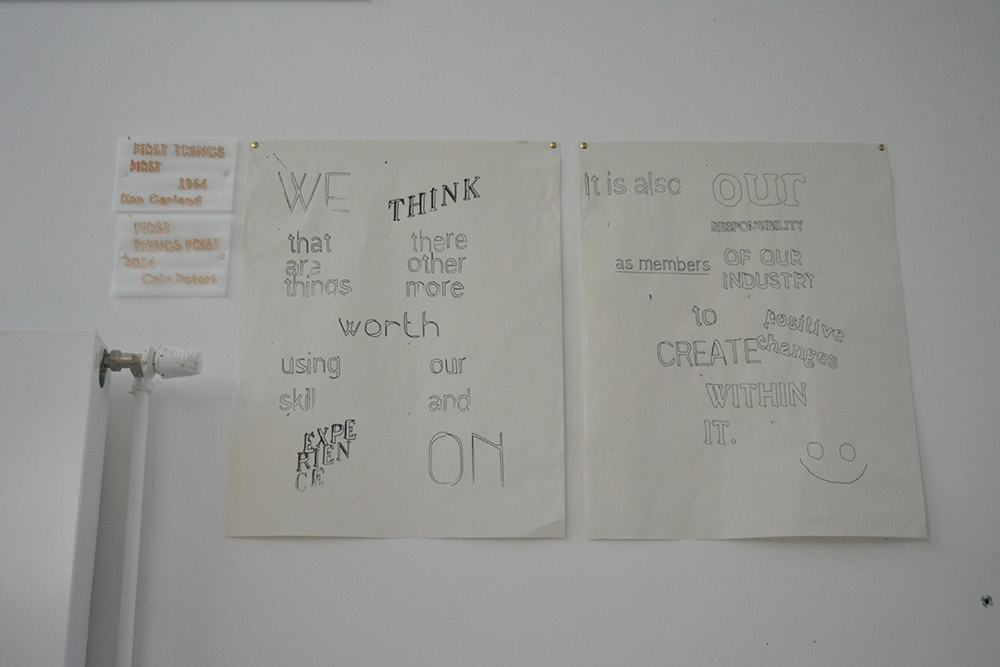 FIRST THINGS
FIRST
1964
Ken Garland
FIRST
THINGS FIRST
2014
Cole Peters
WE THINK
that there
are other
things more
worth
using our
skill and
EXPE
RIEN
CE
ON
It is also our
RESPONSIBILITY
as members OF OUR
INDUSTRY
to positive
CREATE changes
WITHIN
IT.